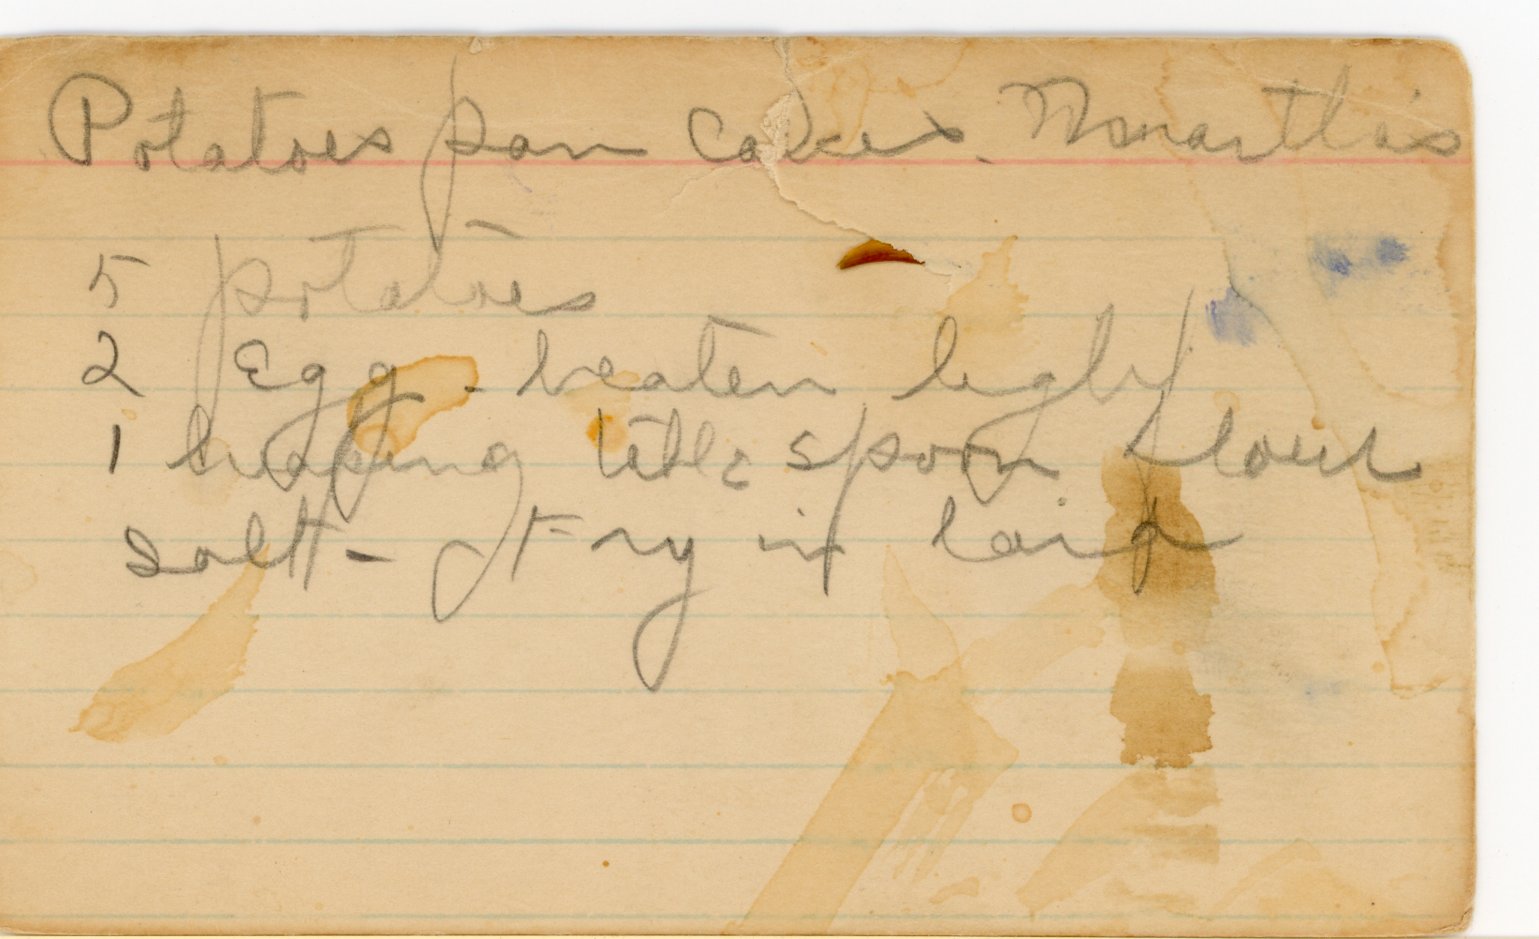 Potatoes pan cakes. Martha's
5 potatoes
2 Egg - beaten light
1 heaping table spoon flour
salt - Fry in lard